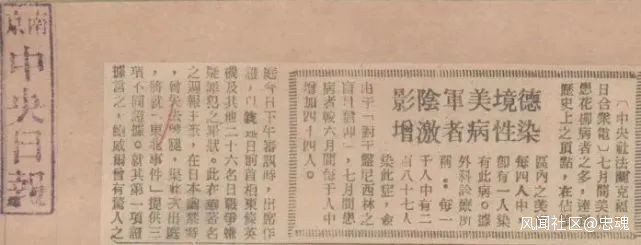 南京
中央日報
德境美軍陰影
染性病者激增
〔中央社法蘭克福
日合衆電〕七月間美
患花柳病者之多,達
歷史上之頂點,在佔
區內之美
每四人中
卽有一人染
有此病。據
外科診療所
每一
千人中有二
百八十七人
染此症,僉
由于「對于盤尼西林之
盲目信仰」,七月間患
病者較六月間每千人中
增加四十四人。
庭今日下午審訊時,出席作
日前首相東條英
機及其他二十六名日戰爭嫌
疑罪犯之罪狀。此在華著名
之週報主筆,在日本幽禁時
,曾失去雙腿,渠此次出庭
,將就「東北事件」提供三
項不同證據。就其第一項證
據言之,鮑威爾曾有驚人之
风闻社区@忠魂